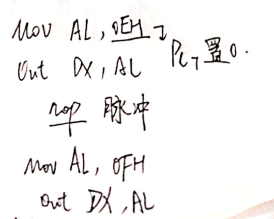 Mov AL, 0EH
PC7 置0.
Out DX, AL
nop 脉冲
Mov AL, 0FH
Out DX, AL